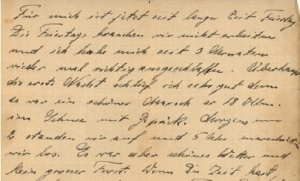 Für mich ist jetzt seit langer Zeit Friedg
Die Friertags brauchen wir nicht arbeiten
und ich habe mich seit 3 Monaten
wieder mal richtig ausgeschlafen. Überhaup
die erste Nacht schlief ich sehr gut denn
es war ein schöner Marsch er 18 Klm.
im Schnee mit Gepäck. Morgens um
standen wir auf und 5 Uhr marschierten
wir los. Es war aber schönes Wetter und
kein grosser Frost. Wenn Du Zeit hast,